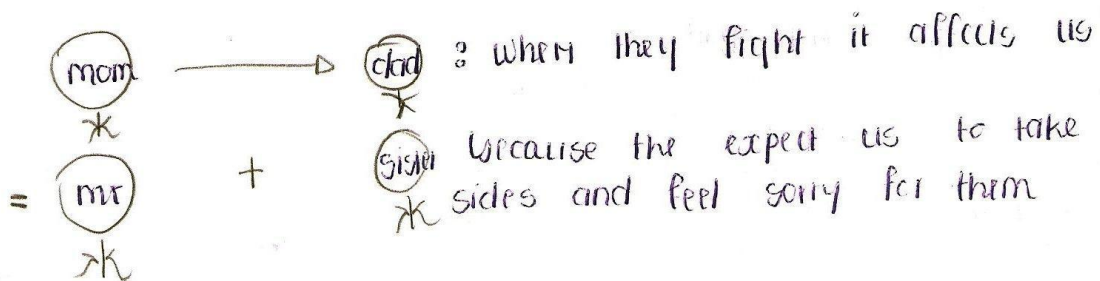 mom → dad : when they fight it affects us
= me + sister because the expect us to take
sides and feel sorry for them